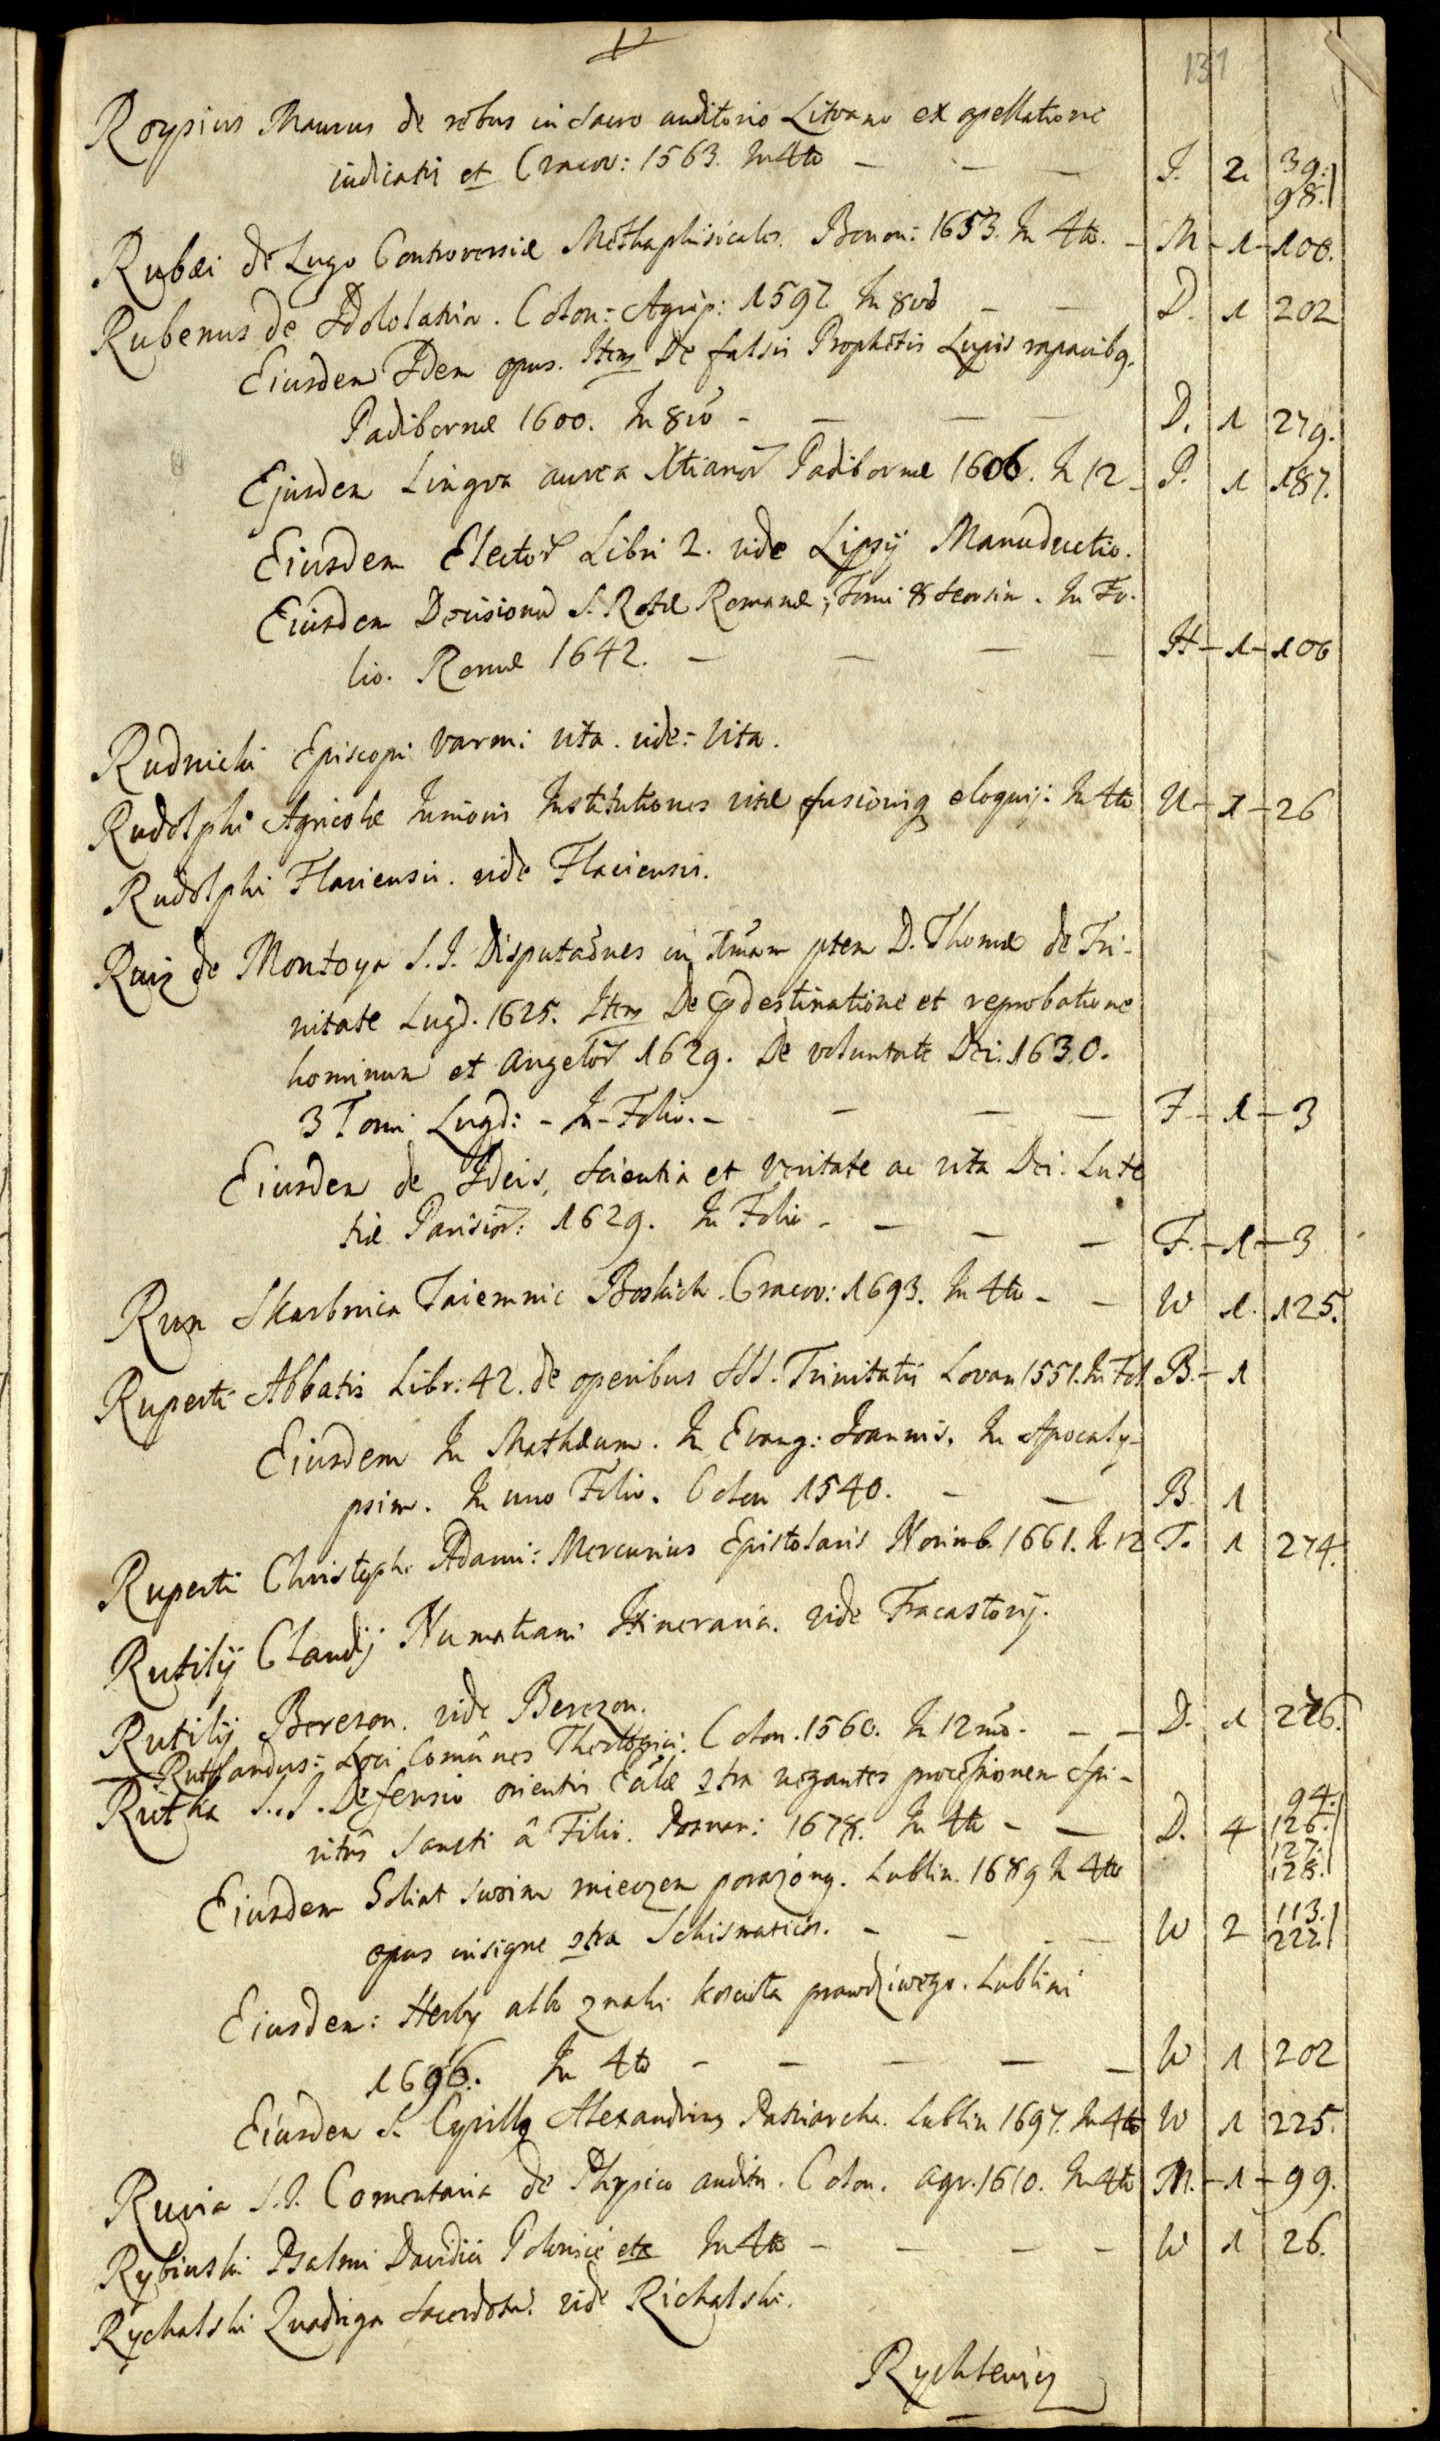 131
Roysius Maurus de rebus in Sacro auditorio Litvano ex apellatione
iudicatis et Cracov: 1563. In 4to — — — J. 2. 39. 98.
Rubæi de Lugo Controversiæ Methaphisicales. Bonon: 1653. In 4to. — M — 1 — 100.
Rubenus de Idololatria. Colon: Agrip: 1597 In 8vo — — D. 1 202
Eiusdem Idem opus. Item De falsis Prophetis Lupis rapacibq.
Padibornæ 1600. In 8vo — — — — D. 1 279.
Ejusdem Lingva aurea Xtianor Padibornæ 1606. In 12 — P. 1 187.
Eiusdem Elector Libri 2. vide Lipsij Manuductio.
Eiusdem Decisionu S. Rotæ Romanæ; Tomi 8 seorsim. In Fo-
lio. Romæ 1642. — — — — H — 1 — 106
Rudnicki Episcopi Varmi: vita. vide: Vita.
Rudolphi Agricolæ Junioris Institutiones vitæ fusioriq eloquij: In 4to U — 1 — 26
Rudolphi Flaviensis. vide Flaviensis.
Ruiz de Montoya S.J. Disputaones in Imam ptem D. Thomæ de Tri-
nitate Lugd. 1625. Item De pdestinatione et reprobatione
hominum et angelor 1629. De voluntate Dei. 1630.
3 Tomi Lugd: — In Folio. — — — — F — 1 — 3
Eiusdem de Ideis, Scientia et veritate ac vita Dei. Lute
tiæ Parisior: 1629. In Folio — — — — F. — 1 — 3
Run Skarbnica Taiemnic Boskich. Cracov: 1693. In 4to — — W 1. 125.
Ruperti Abbatis Libr: 42. de operibus SSS. Trinitatis Lovan 1551. In Fol B. — 1
Eiusdem In Mathæum. In Evang: Joannis. In Apocaly-
psim. In uno Folio. Colon 1540. — — B. 1
Ruperti Christoph: Adami: Mercurius Epistolaris Norimb. 1661. In 12 T. 1 274.
Rutilij Claudij Numatiani Itineraria. vide Fracastorij.
Rutilij Berezon. vide Berezon.
Ruthlandus: Loci Comûnes Theologici. Colon. 1560. In 12mo. — — D. 1 226.
Rutka S.J. Defensio orientis Ecclæ 2tra negantes processionem Spi-
ritûs Sancti â Filio. Posnan: 1678. In 4to — — D. 4 94. 126. 127. 128.
Eiusdem Goliat swoim mieczem porażony. Lublin. 1689 In 4to
opus insigne 2tra Schismaticos. — — — — W 2 113. 222.
Eiusdem: Herby albo znaki kościoła prawdziwego. Lublini
1696. In 4to — — — — — W 1 202
Eiusdem S. Cyrillq Alexandrinq Patriarcha. Lublin 1697. In 4to W 1 225.
Ruvia S.J. Comentaria de Physico auditu. Colon. agr. 1610. In 4to M. — 1 — 99.
Rybinski Psalmi Davidici Polonicè etc In 4to — — — — W 1 26.
Rychalski Quadriga Sacerdotu. vide Richalski.
Rychlewicz